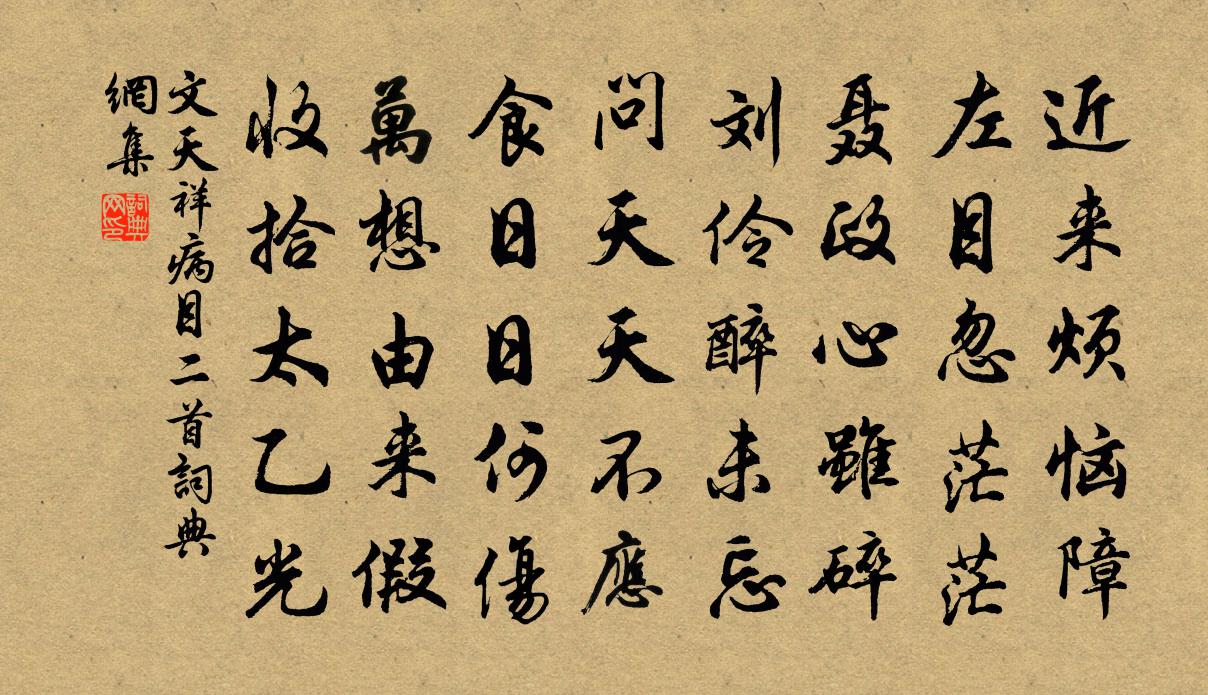 近来烦恼障
左目忽茫茫
聂政心雖碎
刘伶醉未忘
問天天不應
食日日何傷
萬想由来假
收拾太乙光
文天祥病目二首詞典
網集
詞典网印